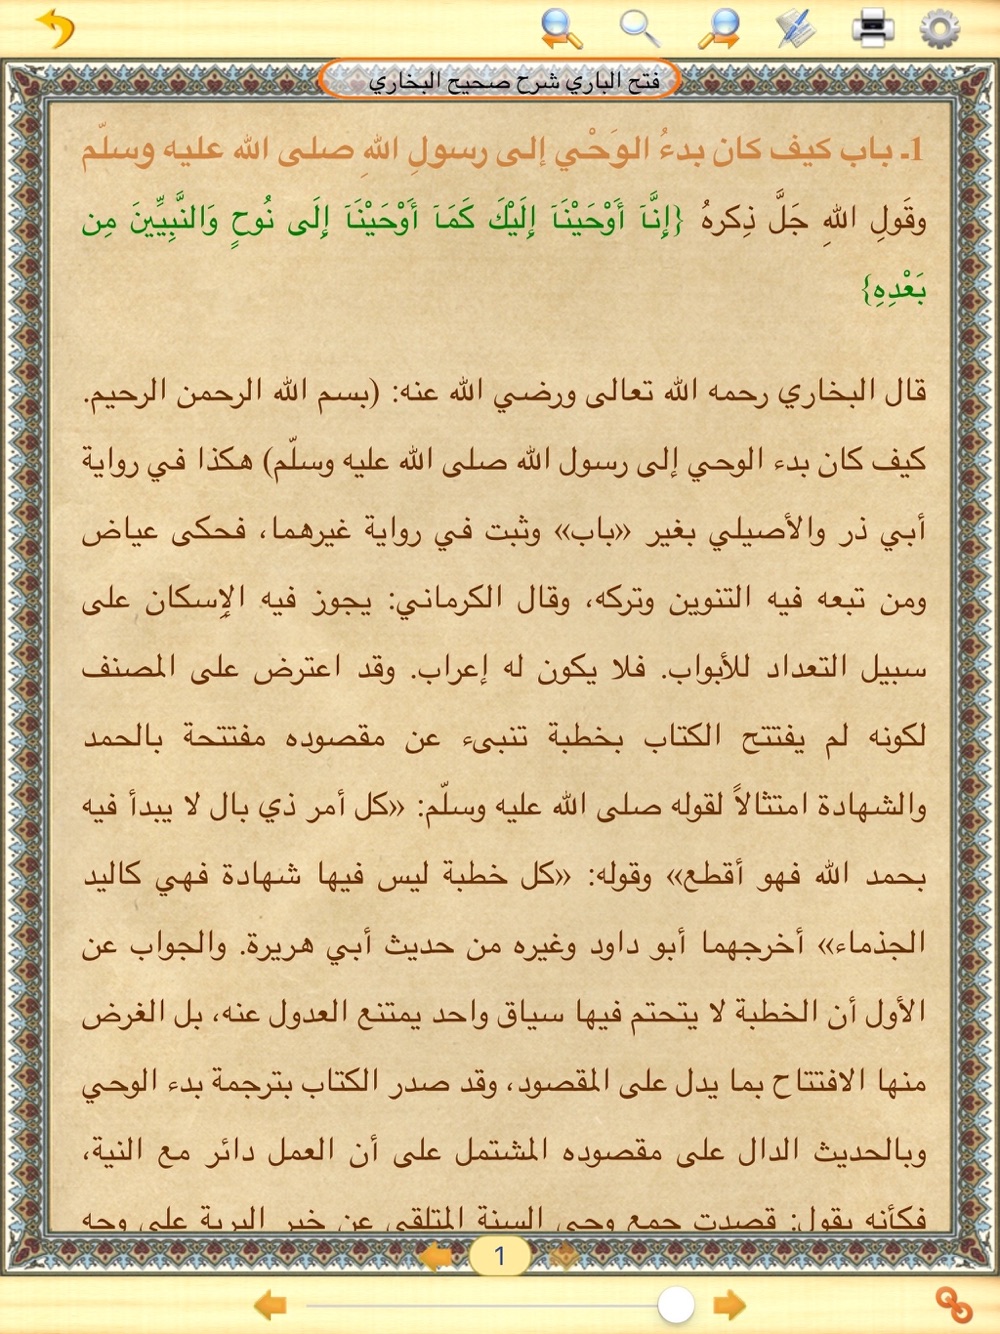 فتح الباري شرح صحيح البخاري
1ـ باب كيف كان بدءُ الوَحْي إلى رسولِ اللهِ صلى الله عليه وسلّم
وقَولِ اللهِ جَلَّ ذِكرهُ {إِنَّآ أَوْحَيْنَآ إِلَيْكَ كَمَآ أَوْحَيْنَآ إِلَى نُوحٍ وَالنَّبِيِّينَ مِن
بَعْدِهِ}
قال البخاري رحمه الله تعالى ورضي الله عنه: (بسم الله الرحمن الرحيم.
كيف كان بدء الوحي إلى رسول الله صلى الله عليه وسلّم) هكذا في رواية
أبي ذر والأصيلي بغير «باب» وثبت في رواية غيرهما، فحكى عياض
ومن تبعه فيه التنوين وتركه، وقال الكرماني: يجوز فيه الإسكان على
سبيل التعداد للأبواب. فلا يكون له إعراب. وقد اعترض على المصنف
لكونه لم يفتتح الكتاب بخطبة تنبىء عن مقصوده مفتتحة بالحمد
والشهادة امتثالاً لقوله صلى الله عليه وسلّم: «كل أمر ذي بال لا يبدأ فيه
بحمد الله فهو أقطع» وقوله: «كل خطبة ليس فيها شهادة فهي كاليد
الجذماء» أخرجهما أبو داود وغيره من حديث أبي هريرة. والجواب عن
الأول أن الخطبة لا يتحتم فيها سياق واحد يمتنع العدول عنه، بل الغرض
منها الافتتاح بما يدل على المقصود، وقد صدر الكتاب بترجمة بدء الوحي
وبالحديث الدال على مقصوده المشتمل على أن العمل دائر مع النية،
فكأنه يقول: قصدت جمع وحي السنة المتلقى عن خير البرية على وجه
1